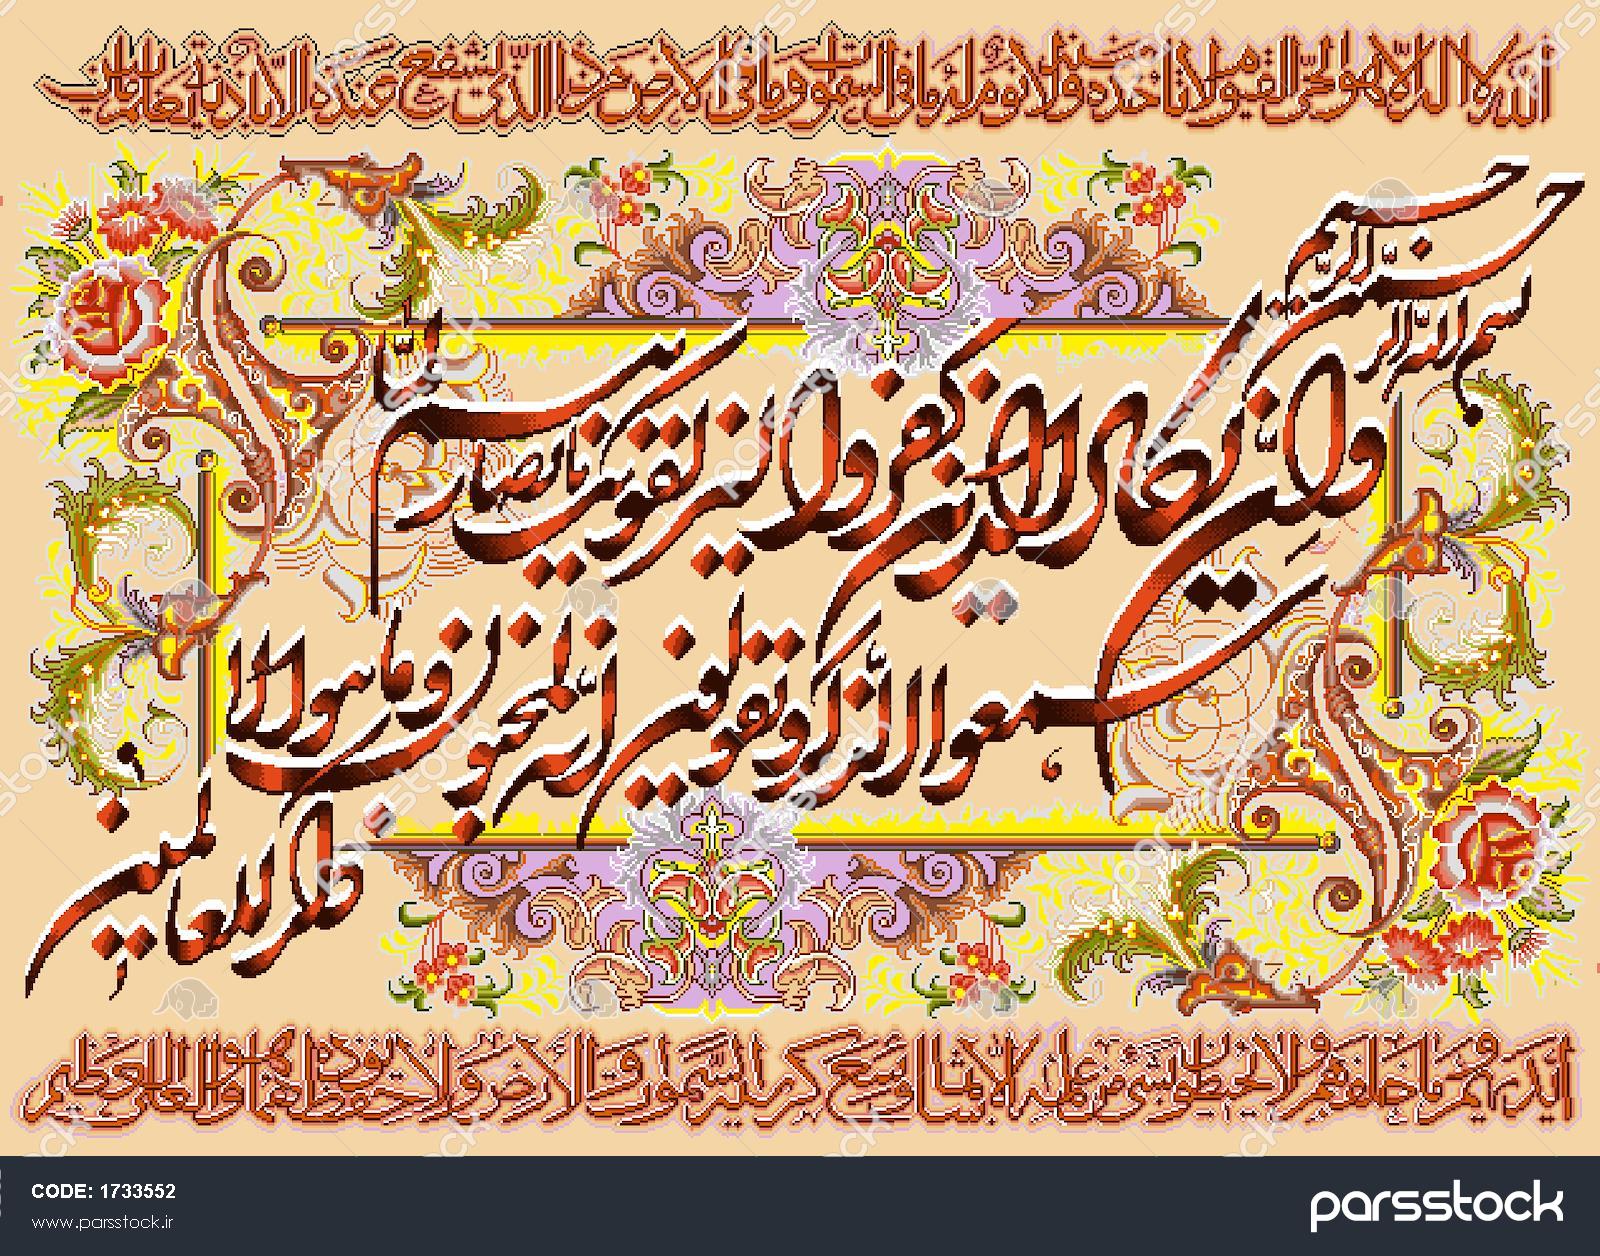 الله لا اله الا هو الحی القیوم لا تاخذه سنة ولا نوم له ما فی السموات وما فی الارض من ذا الذی یشفع عنده الا باذنه یعلم ما بین
بسم الله الرحمن الرحیم
وان یکاد الذین کفروا لیزلقونک بابصارهم لما
سمعوا الذکر ویقولون انه لمجنون وما هو الا
ذکر للعالمین
ایدیهم وما خلفهم ولا یحیطون بشیء من علمه الا بما شاء وسع کرسیه السموات والارض ولا یؤده حفظهما وهو العلی العظیم
CODE: 1733552
www.parsstock.ir
parsstock